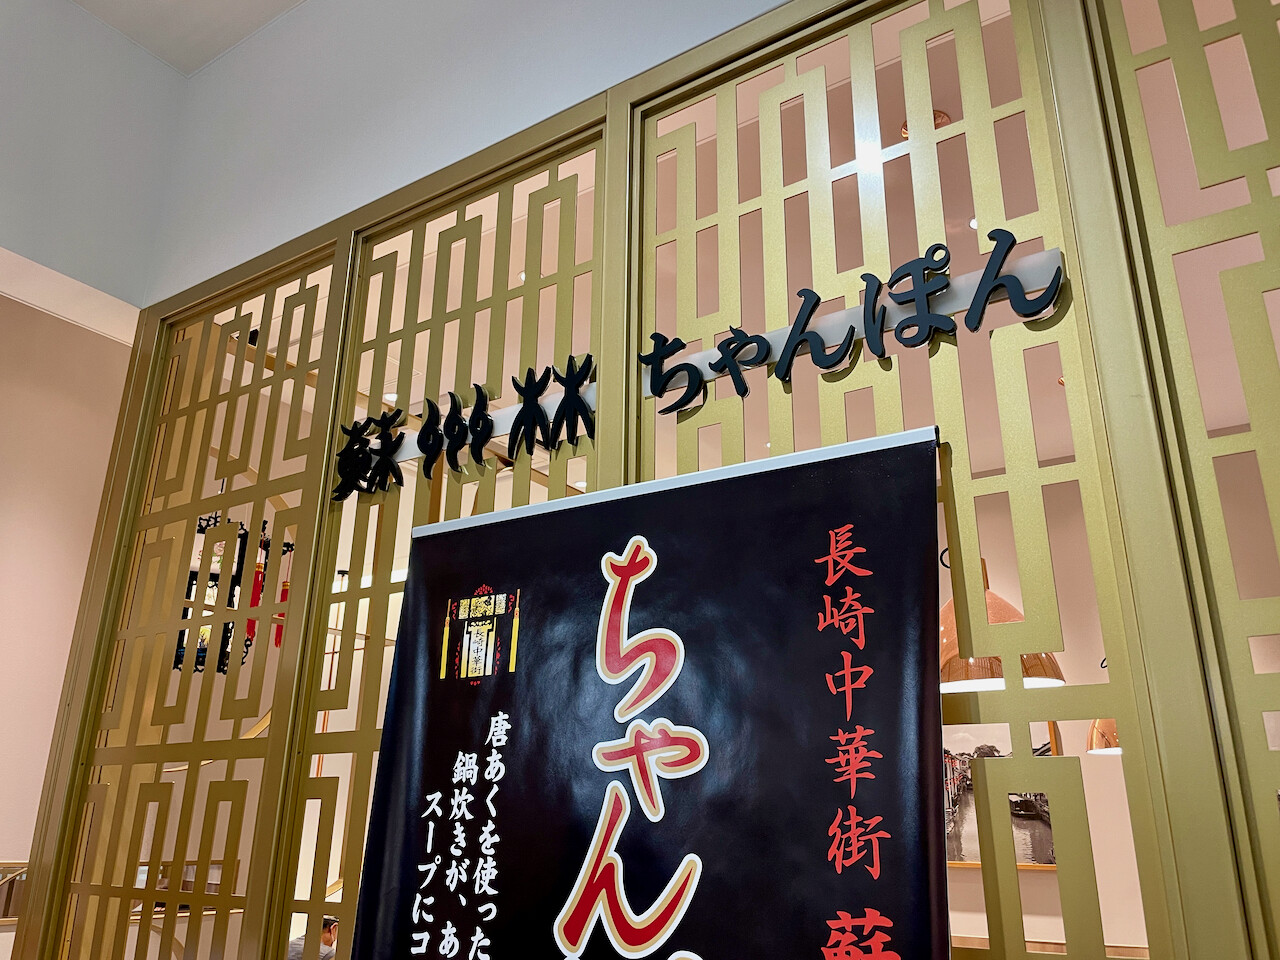 蘇州林 ちゃんぽん
長崎中華街 蘇
ちゃん
長崎中華街
唐あくを使った
鍋炊きが、あ
スープにコ